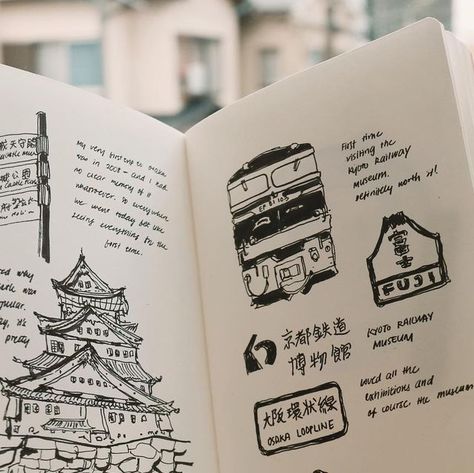 城天守閣
城公園
My very first trip to osaka
was in and I had
no clear memory of it
whatsoever. So everywhere
we went today felt like
seeing everything for the
first time.
why
was
it's
pretty
First time
visiting the
Kyoto Railway
Museum.
Definitely worth it!
EF 81 103
富士
FUJI
KYOTO RAILWAY
MUSEUM
京都鉄道
博物館
大阪環状線
OSAKA LOOPLINE
Loved all the
exhibitions and
of course the museum